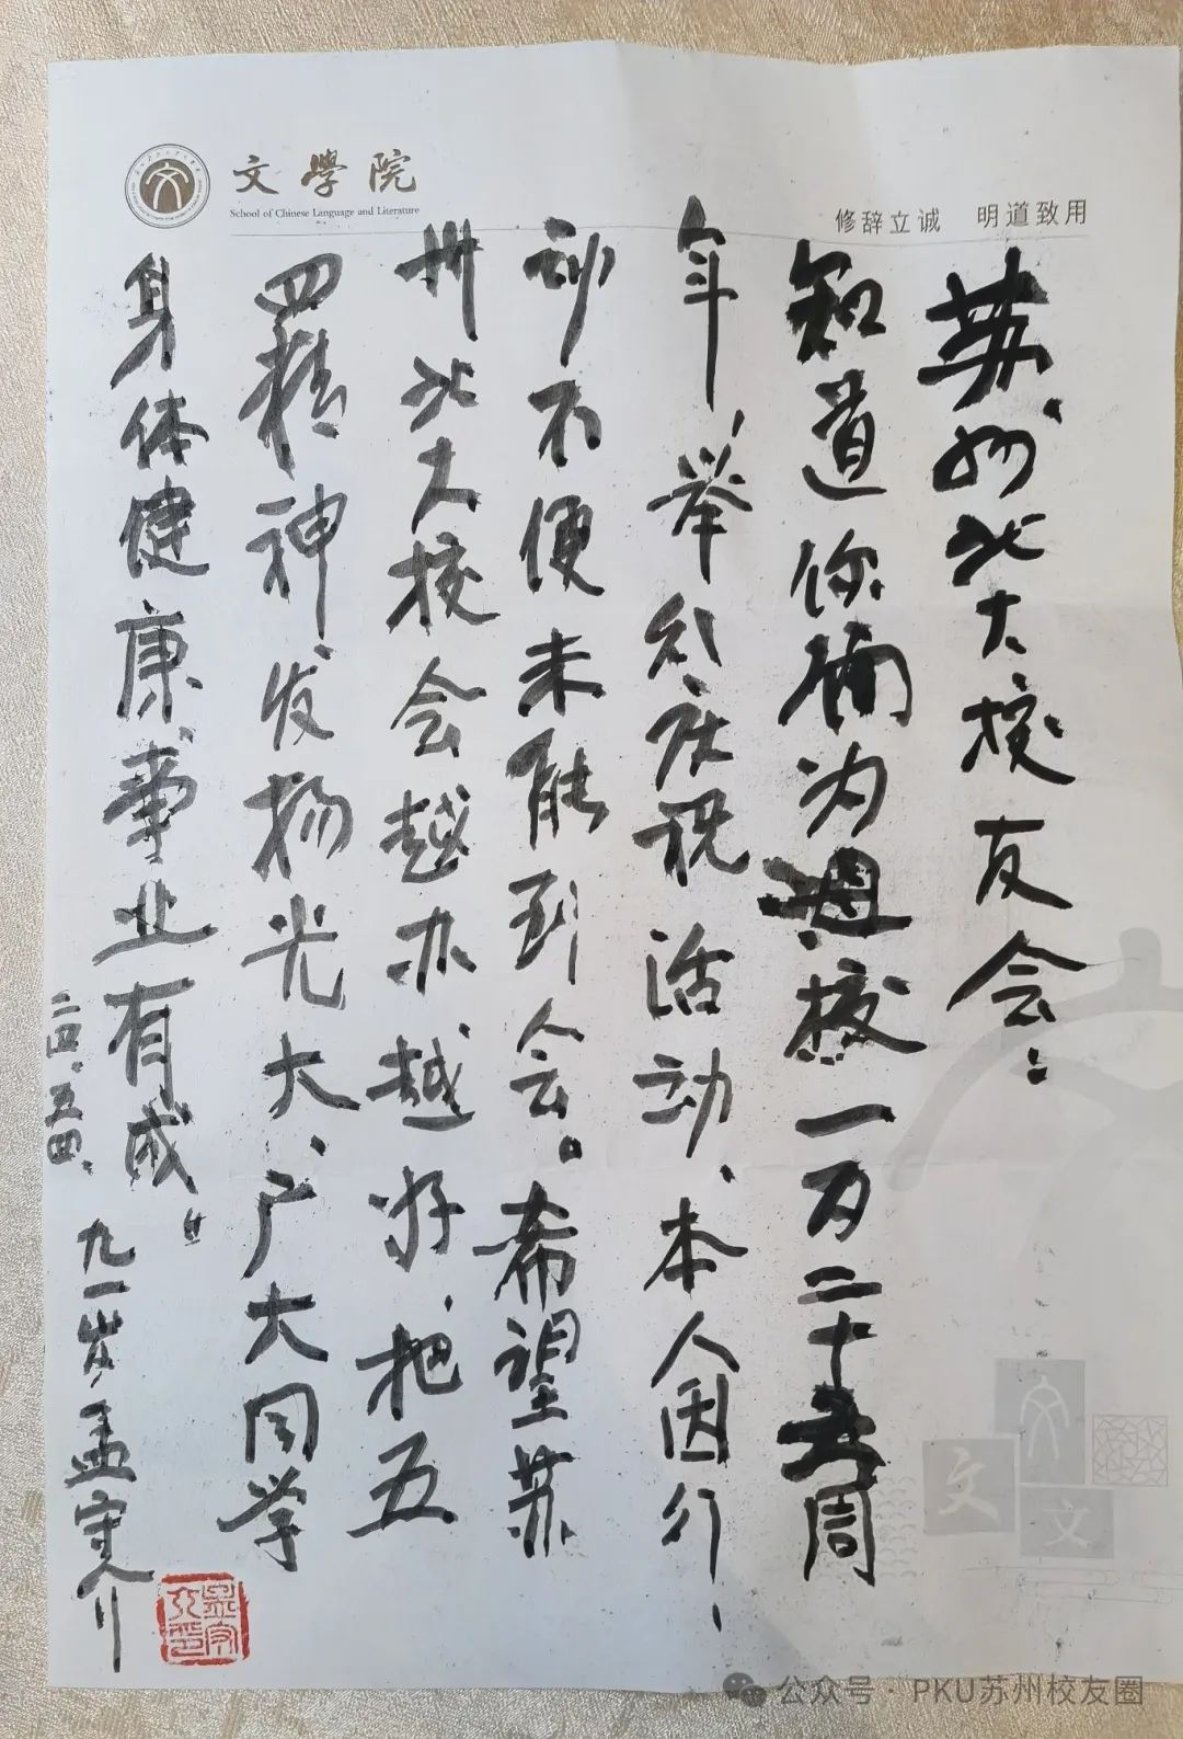 文學院
School of Chinese Language and Literature
修辞立诚 明道致用
苏州北大校友会：
知道你们为母校一百二十五周
年，举行庆祝活动、本人因行，
动不便未能到会。希望苏
州北大校会越办越好、把五
四精神发扬光大、广大同学
身体健康、事业有成。
五.四.
九一岁孟守介
文
文
文
公众号 · PKU苏州校友圈